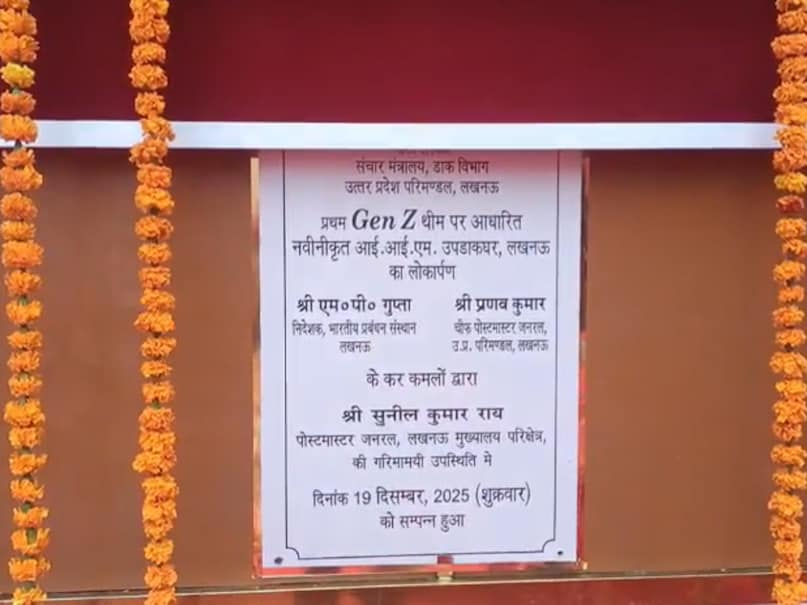 संचार मंत्रालय, डाक विभाग
उत्तर प्रदेश परिमण्डल, लखनऊ
प्रथम Gen Z थीम पर आधारित
नवीनीकृत आई.आई.एम. उपडाकघर, लखनऊ
का लोकार्पण
श्री एम०पी० गुप्ता
निदेशक, भारतीय प्रबंधन संस्थान
लखनऊ
श्री प्रणव कुमार
चीफ पोस्टमास्टर जनरल,
उ.प्र. परिमण्डल, लखनऊ
के कर कमलों द्वारा
श्री सुनील कुमार राय
पोस्टमास्टर जनरल, लखनऊ मुख्यालय परिक्षेत्र,
की गरिमामयी उपस्थिति मे
दिनांक 19 दिसम्बर, 2025 (शुक्रवार)
को सम्पन्न हुआ